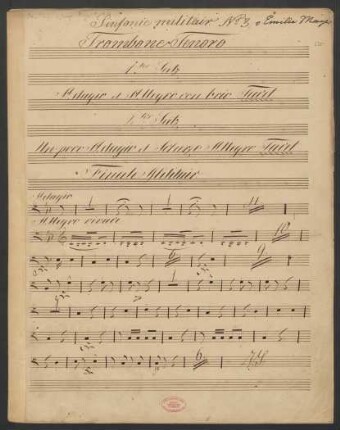 Sinfonie militair No 3, v Emilie Mayer
Trombone Tenoro
1. ter Satz
Adagio et Allegro con brio Tacet
2. ter Satz
Un poco Adagio et Allegro Tacet
Finale Militair
Adagio
1 1 11
Allegro vivace
10
6 9
1
6